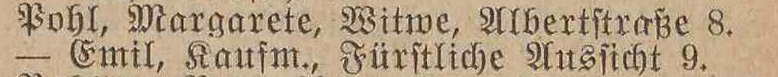 Pohl, Margarete, Witwe, Albertſtraße 8.
— Emil, Kaufm., Fürſtliche Ausſicht 9.